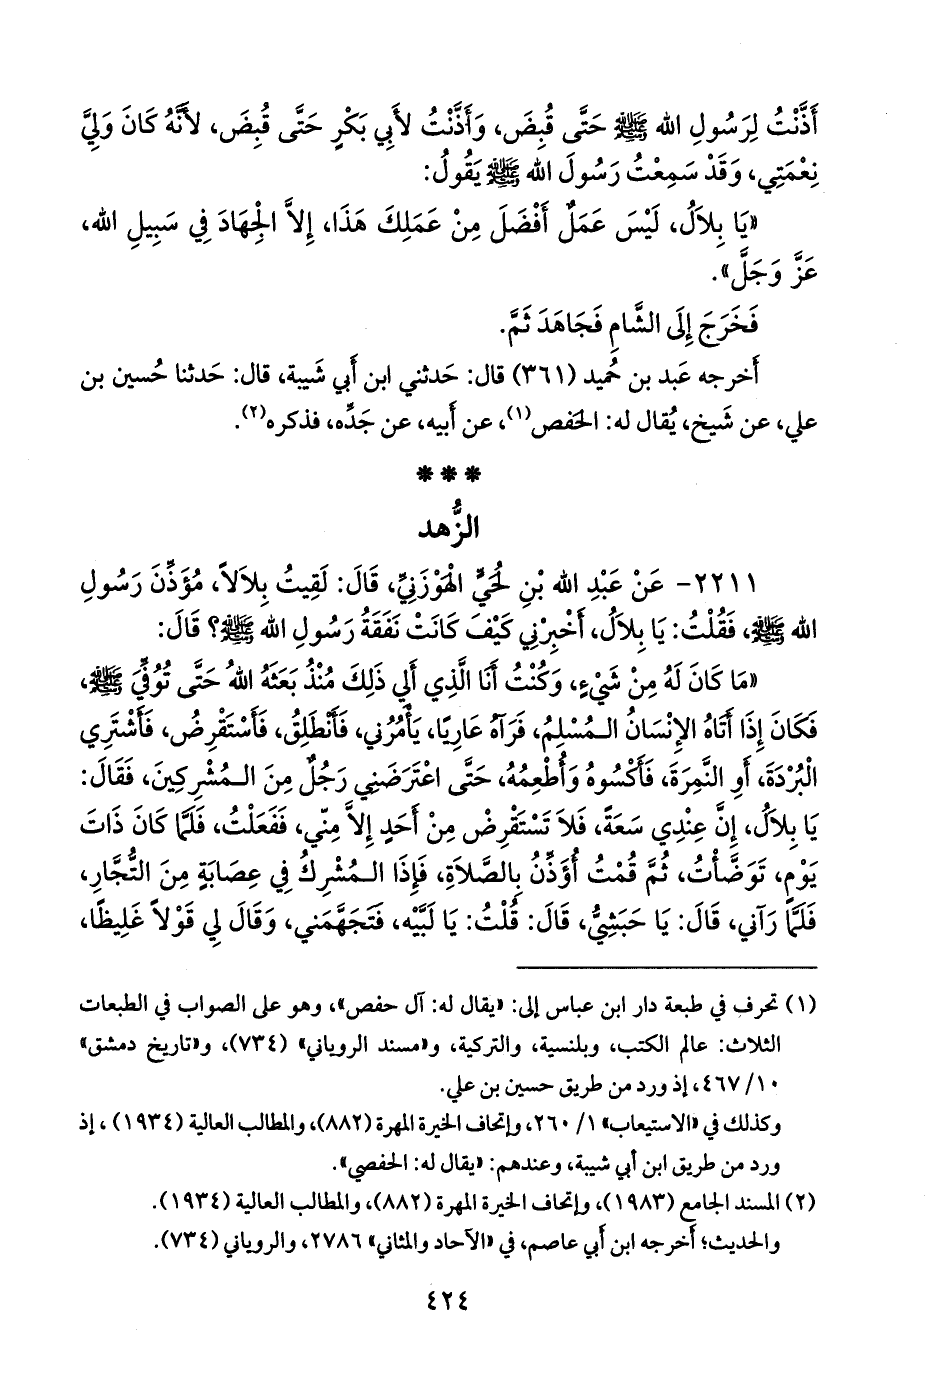 أَذَّنْتُ لِرَسُولِ الله ﷺ حَتَّى قُبِضَ، وَأَذَّنْتُ لأَبِي بَكْرٍ حَتَّى قُبِضَ، لأَنَّهُ كَانَ وَلِيَّ
نِعْمَتِي، وَقَدْ سَمِعْتُ رَسُولَ الله ﷺ يَقُولُ:
«يَا بِلاَلُ، لَيْسَ عَمَلٌ أَفْضَلَ مِنْ عَمَلِكَ هَذَا، إِلاَّ الْجِهَادَ فِي سَبِيلِ الله،
عَزَّ وَجَلَّ».
فَخَرَجَ إِلَى الشَّامِ فَجَاهَدَ ثَمَّ.
أَخرجه عَبد بن حُميد (٣٦١) قال: حَدثني ابن أَبي شَيبة، قال: حَدثنا حُسين بن
علي، عن شَيخ، يُقال له: الحَفص(١)، عن أَبيه، عن جَدِّه، فذكره(٢).
***
الزُّهد
٢٢١١- عَنْ عَبْدِ الله بْنِ لُحَيٍّ الْهَوْزَنِيِّ، قَالَ: لَقِيتُ بِلاَلاً، مُؤَذِّنَ رَسُولِ
الله ﷺ، فَقُلْتُ: يَا بِلاَلُ، أَخْبِرْنِي كَيْفَ كَانَتْ نَفَقَةُ رَسُولِ الله ﷺ؟ قَالَ:
«مَا كَانَ لَهُ مِنْ شَيْءٍ، وَكُنْتُ أَنَا الَّذِي أَلِي ذَلِكَ مُنْذُ بَعَثَهُ اللهُ حَتَّى تُوُفِّيَ ﷺ،
فَكَانَ إِذَا أَتَاهُ الإِنْسَانُ الـمُسْلِمُ، فَرَآهُ عَارِيًا، يَأْمُرُنِي، فَأَنْطَلِقُ، فَأَسْتَقْرِضُ، فَأَشْتَرِي
الْبُرْدَةَ، أَوِ النَّمِرَةَ، فَأَكْسُوهُ وَأُطْعِمُهُ، حَتَّى اعْتَرَضَنِي رَجُلٌ مِنَ الـمُشْرِكِينَ، فَقَالَ:
يَا بِلاَلُ، إِنَّ عِنْدِي سَعَةً، فَلاَ تَسْتَقْرِضْ مِنْ أَحَدٍ إِلاَّ مِنِّي، فَفَعَلْتُ، فَلَمَّا كَانَ ذَاتَ
يَوْمٍ، تَوَضَّأْتُ، ثُمَّ قُمْتُ أُؤَذِّنُ بِالصَّلاَةِ، فَإِذَا الـمُشْرِكُ فِي عِصَابَةٍ مِنَ التُّجَّارِ،
فَلَمَّا رَآنِي، قَالَ: يَا حَبَشِيُّ، قَالَ: قُلْتُ: يَا لَبَّيْه، فَتَجَهَّمَنِي، وَقَالَ لِي قَوْلاً غَلِيظًا،
(١) تحرف في طبعة دار ابن عباس إلى: «يقال له: آل حفص»، وهو على الصواب في الطبعات
الثلاث: عالم الكتب، وبلنسية، والتركية، و«مسند الروياني» (٧٣٤)، و«تاريخ دمشق»
١٠/ ٤٦٧، إذ ورد من طريق حسين بن علي.
وكذلك في «الاستيعاب» ١/ ٢٦٠، وإتحاف الخيرة المهرة (٨٨٢)، والمطالب العالية (١٩٣٤) ، إذ
ورد من طريق ابن أبي شيبة، وعندهم: «يقال له: الحفصي».
(٢) المسند الجامع (١٩٨٣)، وإتحاف الخيرة المهرة (٨٨٢)، والمطالب العالية (١٩٣٤).
والحديث؛ أخرجه ابن أبي عاصم، في «الآحاد والمثاني» ٢٧٨٦، والروياني (٧٣٤).
٤٢٤